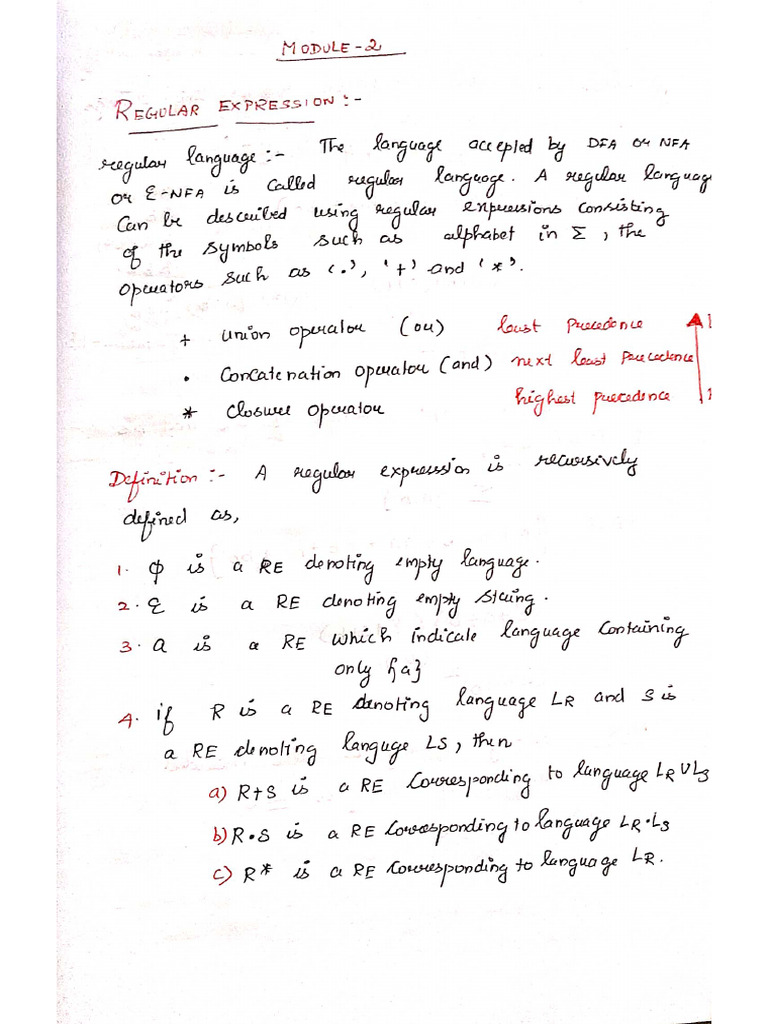 MODULE-2
REGULAR EXPRESSION :-
regular language :- The language accepted by DFA or NFA
or Ɛ-NFA is called regular language. A regular language
Can be described using regular expressions consisting
of the symbols such as alphabet in Σ, the
operators such as '.', '+' and '*'.
+ union operator (or) least precedence
. Concatenation operator (and) next least precedence
* closure operator highest precedence
Definition :- A regular expression is recursively
defined as,
1. φ is a RE denoting empty language.
2. Ɛ is a RE denoting empty string.
3. a is a RE which indicate language containing
only {a}
4. if R is a RE denoting language LR and S is
a RE denoting languge LS, then
a) R+S is a RE corresponding to language LR U LS
b) R.S is a RE corresponding to language LR.LS
c) R* is a RE corresponding to language LR.